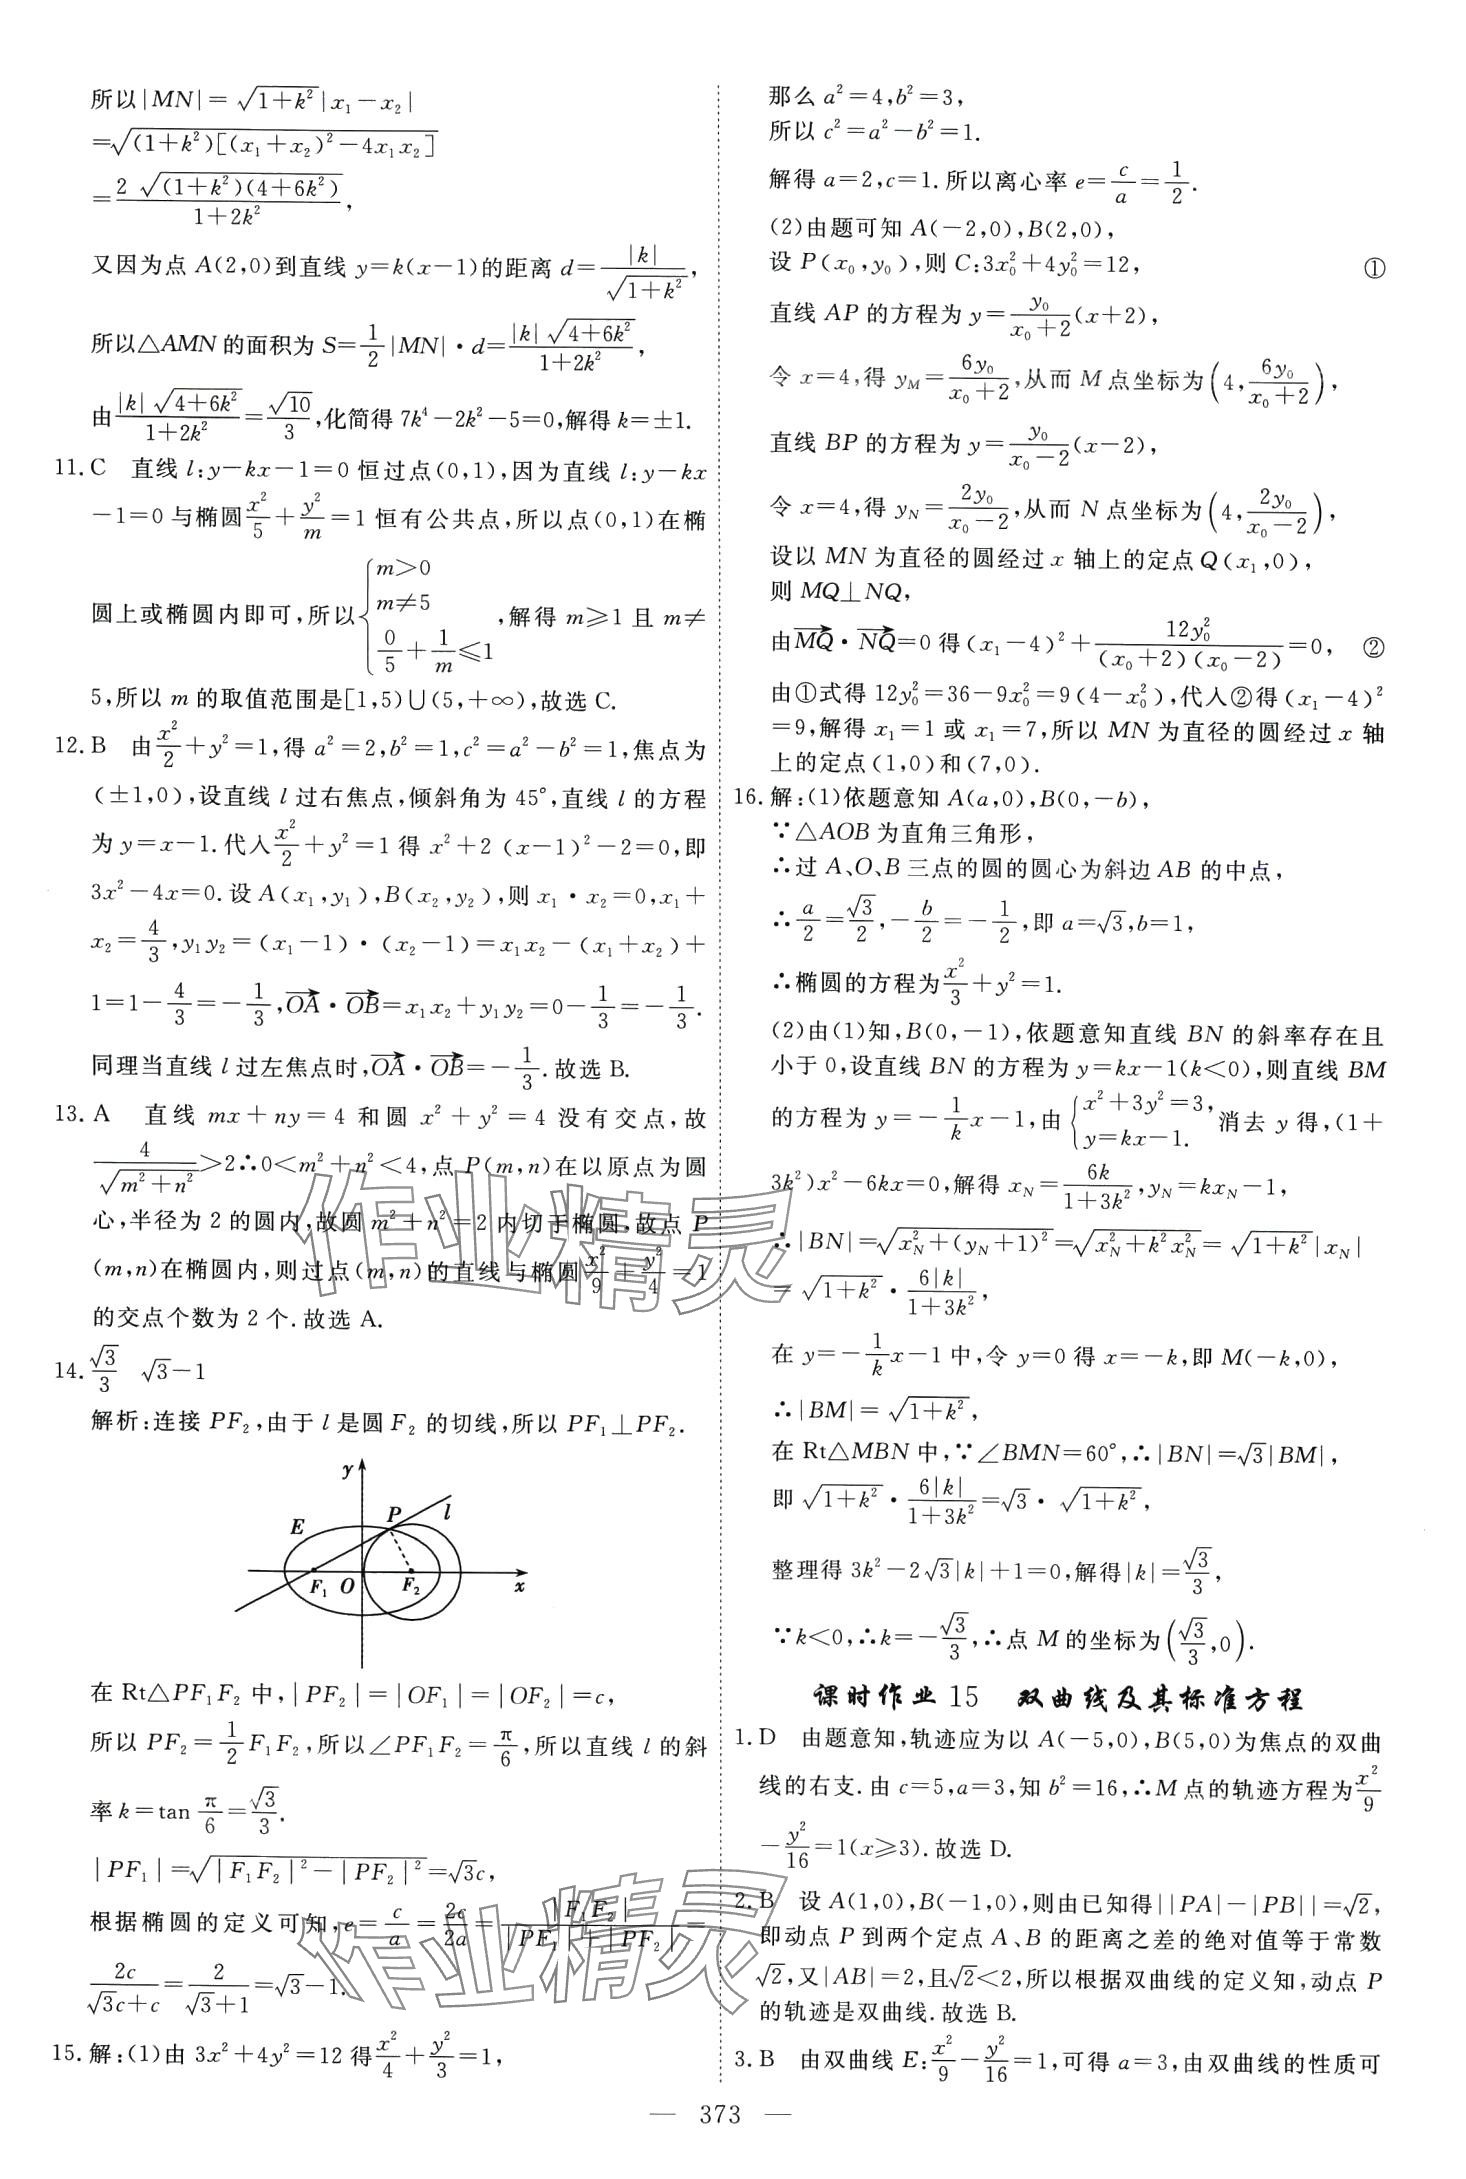 所以|MN|=√(1+k²)|x₁-x₂|
=√((1+k²)[(x₁+x₂)²-4x₁x₂])
=2√((1+k²)(4+6k²))/(1+2k²),
又因为点 A(2,0)到直线 y=k(x-1)的距离 d=|k|/√(1+k²),
所以△AMN 的面积为 S=1/2|MN|·d=|k|√(4+6k²)/(1+2k²),
由|k|√(4+6k²)/(1+2k²)=√10/3,化简得 7k⁴-2k²-5=0,解得 k=±1.
11.C 直线 l:y-kx-1=0 恒过点(0,1),因为直线 l:y-kx
-1=0 与椭圆x²/5+y²/m=1 恒有公共点,所以点(0,1)在椭
圆上或椭圆内即可,所以{m>0 m≠5 0/5+1/m≤1,解得 m≥1 且 m≠
5,所以 m 的取值范围是[1,5)∪(5,+∞),故选 C.
12.B 由x²/2+y²=1,得 a²=2,b²=1,c²=a²-b²=1,焦点为
(±1,0),设直线 l 过右焦点,倾斜角为 45°,直线 l 的方程
为 y=x-1.代入x²/2+y²=1 得 x²+2(x-1)²-2=0,即
3x²-4x=0.设 A(x₁,y₁),B(x₂,y₂),则 x₁·x₂=0,x₁+
x₂=4/3,y₁y₂=(x₁-1)·(x₂-1)=x₁x₂-(x₁+x₂)+
1=1-4/3=-1/3,OA→·OB→=x₁x₂+y₁y₂=0-1/3=-1/3.
同理当直线 l 过左焦点时,OA→·OB→=-1/3.故选 B.
13.A 直线 mx+ny=4 和圆 x²+y²=4 没有交点,故
4/√(m²+n²)>2∴0<m²+n²<4,点 P(m,n)在以原点为圆
心,半径为 2 的圆内,故圆 m²+n²=2 内切于椭圆,故点 P
(m,n)在椭圆内,则过点(m,n)的直线与椭圆x²/9+y²/4=1
的交点个数为 2 个.故选 A.
14.√3/3 √3-1
解析:连接 PF₂,由于 l 是圆 F₂ 的切线,所以 PF₁⊥PF₂.
y
P l
E
F₁ O F₂ x
在 Rt△PF₁F₂ 中,|PF₂|=|OF₁|=|OF₂|=c,
所以 PF₂=1/2F₁F₂,所以∠PF₁F₂=π/6,所以直线 l 的斜
率 k=tan π/6=√3/3.
|PF₁|=√(|F₁F₂|²-|PF₂|²)=√3c,
根据椭圆的定义可知,e=c/a=2c/2a=|F₁F₂|/(|PF₁|+|PF₂|)=
2c/(√3c+c)=2/(√3+1)=√3-1.
15.解:(1)由 3x²+4y²=12 得x²/4+y²/3=1,
那么 a²=4,b²=3,
所以 c²=a²-b²=1.
解得 a=2,c=1.所以离心率 e=c/a=1/2.
(2)由题可知 A(-2,0),B(2,0),
设 P(x₀,y₀),则 C:3x₀²+4y₀²=12, ①
直线 AP 的方程为 y=y₀/(x₀+2)(x+2),
令 x=4,得 y_M=6y₀/(x₀+2),从而 M 点坐标为(4,6y₀/(x₀+2)),
直线 BP 的方程为 y=y₀/(x₀-2)(x-2),
令 x=4,得 y_N=2y₀/(x₀-2),从而 N 点坐标为(4,2y₀/(x₀-2)),
设以 MN 为直径的圆经过 x 轴上的定点 Q(x₁,0),
则 MQ⊥NQ,
由MQ→·NQ→=0 得(x₁-4)²+12y₀²/((x₀+2)(x₀-2))=0, ②
由①式得 12y₀²=36-9x₀²=9(4-x₀²),代入②得(x₁-4)²
=9,解得 x₁=1 或 x₁=7,所以 MN 为直径的圆经过 x 轴
上的定点(1,0)和(7,0).
16.解:(1)依题意知 A(a,0),B(0,-b),
∵△AOB 为直角三角形,
∴过 A、O、B 三点的圆的圆心为斜边 AB 的中点,
∴a/2=√3/2,-b/2=-1/2,即 a=√3,b=1,
∴椭圆的方程为x²/3+y²=1.
(2)由(1)知,B(0,-1),依题意知直线 BN 的斜率存在且
小于 0,设直线 BN 的方程为 y=kx-1(k<0),则直线 BM
的方程为 y=-1/k x-1,由{x²+3y²=3, y=kx-1. 消去 y 得,(1+
3k²)x²-6kx=0,解得 x_N=6k/(1+3k²),y_N=kx_N-1,
∴|BN|=√(x_N²+(y_N+1)²)=√(x_N²+k²x_N²)=√(1+k²)|x_N|
=√(1+k²)·6|k|/(1+3k²),
在 y=-1/k x-1 中,令 y=0 得 x=-k,即 M(-k,0),
∴|BM|=√(1+k²),
在 Rt△MBN 中,∵∠BMN=60°,∴|BN|=√3|BM|,
即 √(1+k²)·6|k|/(1+3k²)=√3·√(1+k²),
整理得 3k²-2√3|k|+1=0,解得|k|=√3/3,
∵k<0,∴k=-√3/3,∴点 M 的坐标为(√3/3,0).
课时作业 15 双曲线及其标准方程
1.D 由题意知,轨迹应为以 A(-5,0),B(5,0)为焦点的双曲
线的右支.由 c=5,a=3,知 b²=16,∴M 点的轨迹方程为x²/9
-y²/16=1(x≥3).故选 D.
2.B 设 A(1,0),B(-1,0),则由已知得||PA|-|PB||=√2,
即动点 P 到两个定点 A、B 的距离之差的绝对值等于常数
√2,又|AB|=2,且√2<2,所以根据双曲线的定义知,动点 P
的轨迹是双曲线.故选 B.
3.B 由双曲线 E:x²/9-y²/16=1,可得 a=3,由双曲线的性质可
— 373 —
作业精灵
作业精灵